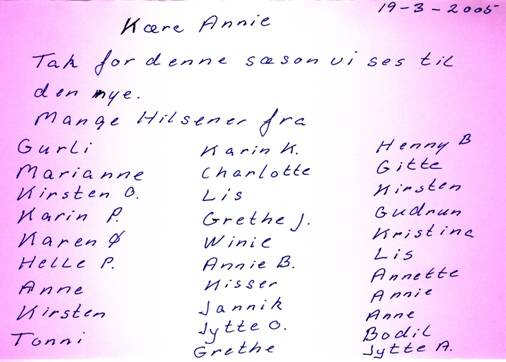 19-3-2005
Kære Annie
Tak for denne sæson vi ses til
den nye.
Mange Hilsener fra
Gurli
Marianne
Kirsten O.
Karin P.
Karen Ø
Helle P.
Anne
Kirsten
Tonni
Karin K.
Charlotte
Lis
Grethe J.
Winie
Annie B.
Kisser
Jannik
Jytte O.
Grethe
Henny B
Gitte
Kirsten
Gudrun
Kristina
Lis
Annette
Annie
Anne
Bodil
Jytte A.